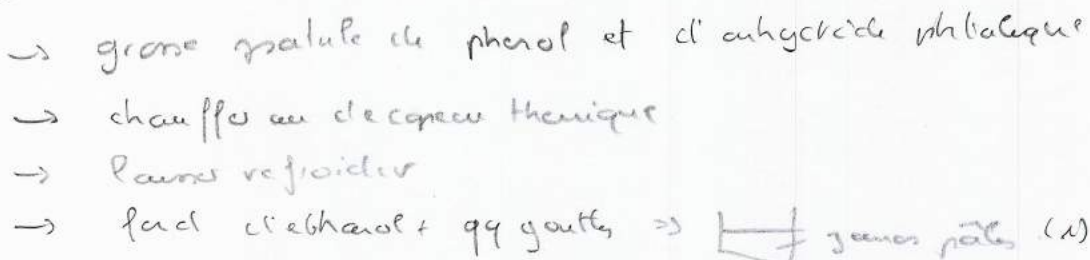 → grosse spatule de phenol et d'anhydride phtalique
→ chauffer au decapeur thermique
→ laisser refroidir
→ fond d'ethanol + qq gouttes => jaunes pâles (1)